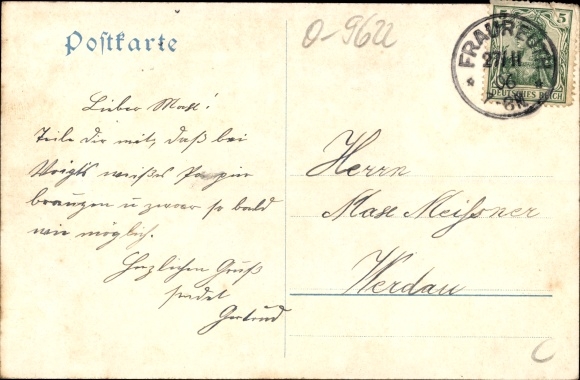 Postkarte
O-9622
FRAUREUTH
27/11
06
7-8N
5
DEUTSCHES REICH
Lieber Max!
Teile dir mit, daß bei
Voigts weißes Papier
brauchen u zwar so bald
wie möglich.
Herzlichen Gruß
sendet
Gertrud
Herrn
Max Meissner
Werdau